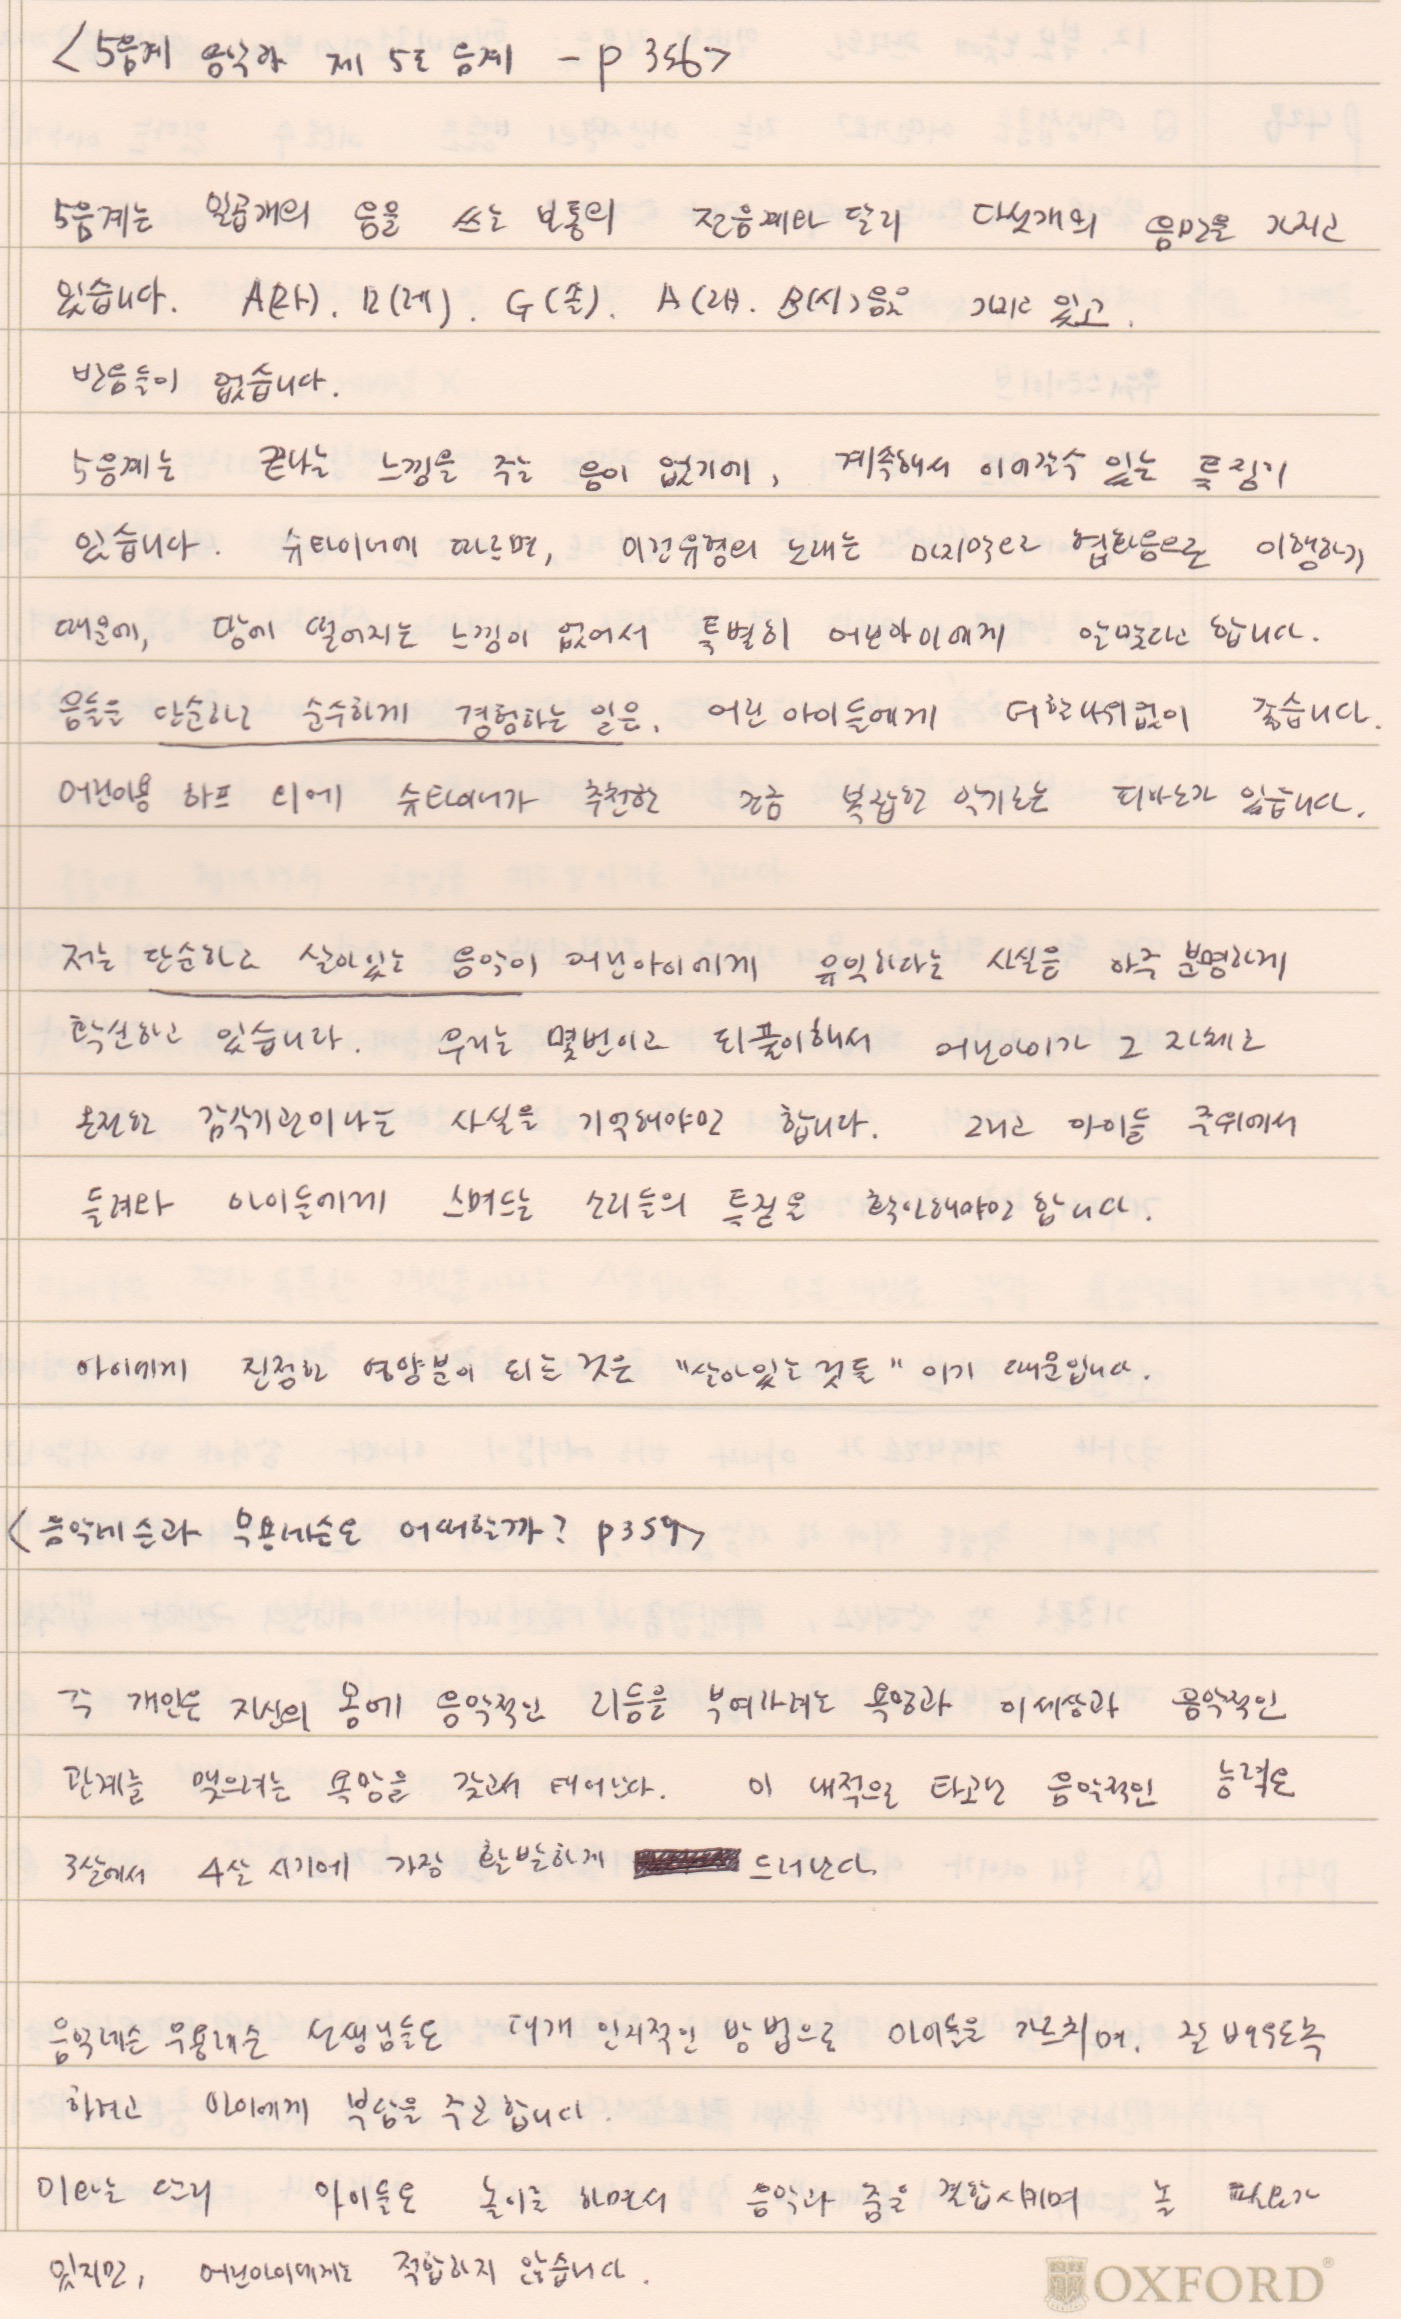 <5음계 음악과 제 5도 음계 - p 356>
5음계는 일곱개의 음을 쓰는 보통의 전음계와 달리 다섯개의 음만을 가지고
있습니다. A(라). D(레). G(솔). A(라). B(시)음은 가지고 있고.
반음들이 없습니다.
5음계는 끝나는 느낌을 주는 음이 없기에, 계속해서 이어갈수 있는 특징이
있습니다. 슈타이너에 따르면, 이런유형의 노래는 마지막으로 협화음으로 이행하기
때문에, 땅에 떨어지는 느낌이 없어서 특별히 어린아이에게 알맞다고 합니다.
음들을 단순하고 순수하게 경험하는 일은, 어린 아이들에게 더할나위없이 좋습니다.
어린이용 하프 외에 슈타이너가 추천한 조금 복잡한 악기로는 피아노가 있습니다.
저는 단순하고 살아있는 음악이 어린아이에게 유익하다는 사실을 아주 분명하게
확신하고 있습니다. 우리는 몇번이고 되풀이해서 어린아이가 그 자체로
온전한 감각기관이라는 사실을 기억해야만 합니다. 그리고 아이들 주위에서
들려와 아이들에게 스며드는 소리들의 특질을 확인해야만 합니다.
아이에게 진정한 영양분이 되는 것은 "살아있는 것들" 이기 때문입니다.
<음악레슨과 무용레슨은 어떠할까? p359>
각 개인은 자신의 몸에 음악적인 리듬을 부여하려는 욕망과 이세상과 음악적인
관계를 맺으려는 욕망을 갖고서 태어난다. 이 내적으로 타고난 음악적인 능력은
3살에서 4살 시기에 가장 활발하게 드러난다.
음악레슨 무용레슨 선생님들은 대개 인지적인 방법으로 아이들을 가르치며. 잘 배우도록
하려고 아이에게 부담을 주곤 합니다.
이와는 달리 아이들은 놀이를 하면서 음악과 춤을 결합시키며 놀 필요가
있지만, 어린아이에게는 적합하지 않습니다.
OXFORD